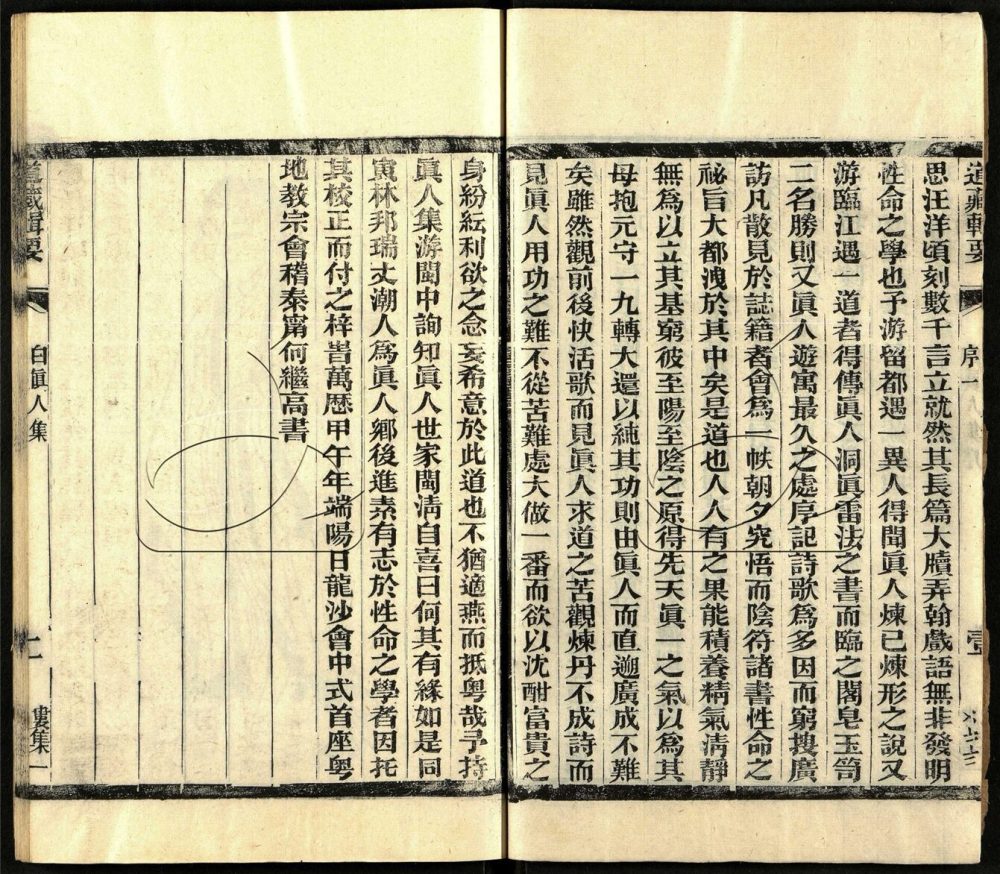 道藏輯要
序一
思汪洋頃刻數千言立就然其長篇大牘弄翰戲語無非發明
性命之學也予游留都遇一異人得聞眞人煉已煉形之說又
游臨江遇一道者得傳眞人洞眞雷法之書而臨之閣皂玉笥
二名勝則又眞人遊寓最久之處序記詩歌爲多因而窮搜廣
訪凡散見於誌籍者會爲一帙朝夕究悟而陰符諸書性命之
祕旨大都洩於其中矣是道也人人有之果能積養精氣淸靜
無爲以立其基窮彼至陽至陰之原得先天眞一之氣以爲其
母抱元守一九轉大還以純其功則由眞人而直遡廣成不難
矣雖然觀前後快活歌而見眞人求道之苦觀煉丹不成詩而
見眞人用功之難不從苦難處大做一番而欲以沈酣富貴之
身紛紜利欲之念妄希意於此道也不猶適燕而抵粤哉予持
眞人集游閩中詢知眞人世家閩淸自喜曰何其有緣如是同
寅林邦瑞丈潮人爲眞人鄉後進素有志於性命之學者因托
其校正而付之梓旹萬歷甲午年端陽日龍沙會中式首座粤
地教宗會稽秦甯何繼高書
道藏輯要
白眞人集
婁集一